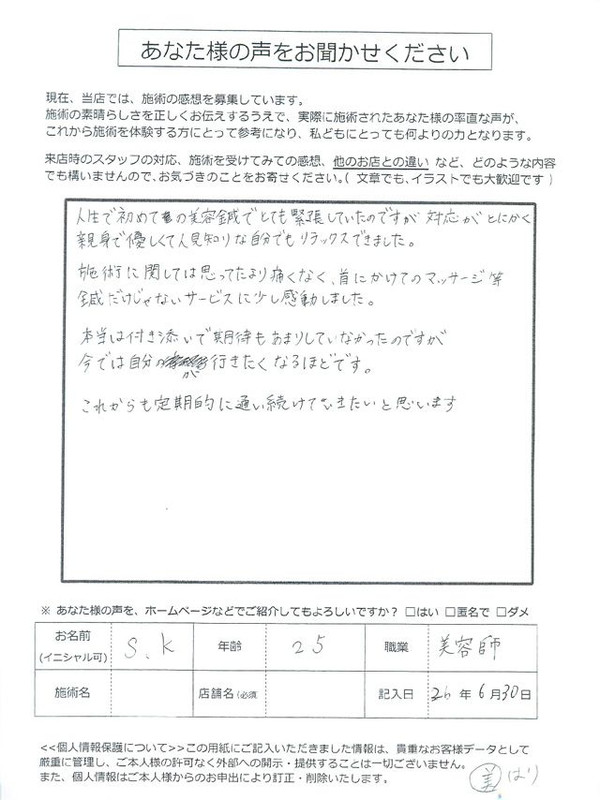 あなた様の声をお聞かせください
現在、当店では、施術の感想を募集しています。
施術の素晴らしさを正しくお伝えするうえで、実際に施術されたあなた様の率直な声が、
これから施術を体験する方にとって参考になり、私どもにとっても何よりの力となります。
来店時のスタッフの対応、施術を受けてみての感想、他のお店との違い など、どのような内容
でも構いませんので、お気づきのことをお寄せください。( 文章でも、イラストでも大歓迎です )
人生で初めての美容鍼でとても緊張していたのですが 対応がとにかく
親身で優しくて人見知りな自分でもリラックスできました。
施術に関しては思ってたより痛くなく、首にかけてのマッサージ等
鍼だけじゃないサービスに少し感動しました。
本当は付き添いで期待もあまりしていなかったのですが
今では自分が行きたくなるほどです。
これからも定期的に通い続けていきたいと思います
※ あなた様の声を、ホームページなどでご紹介してもよろしいですか？ □はい □匿名で □ダメ
お名前 (イニシャル可) S.K 年齢 25 職業 美容師
施術名 店舗名(必須 記入日 26 年 6 月 30 日
<<個人情報保護について>>この用紙にご記入いただきました情報は、貴重なお客様データとして
厳重に管理し、ご本人様の許可なく外部への開示・提供することは一切ございません。
また、個人情報はご本人様からのお申出により訂正・削除いたします。
美 はり